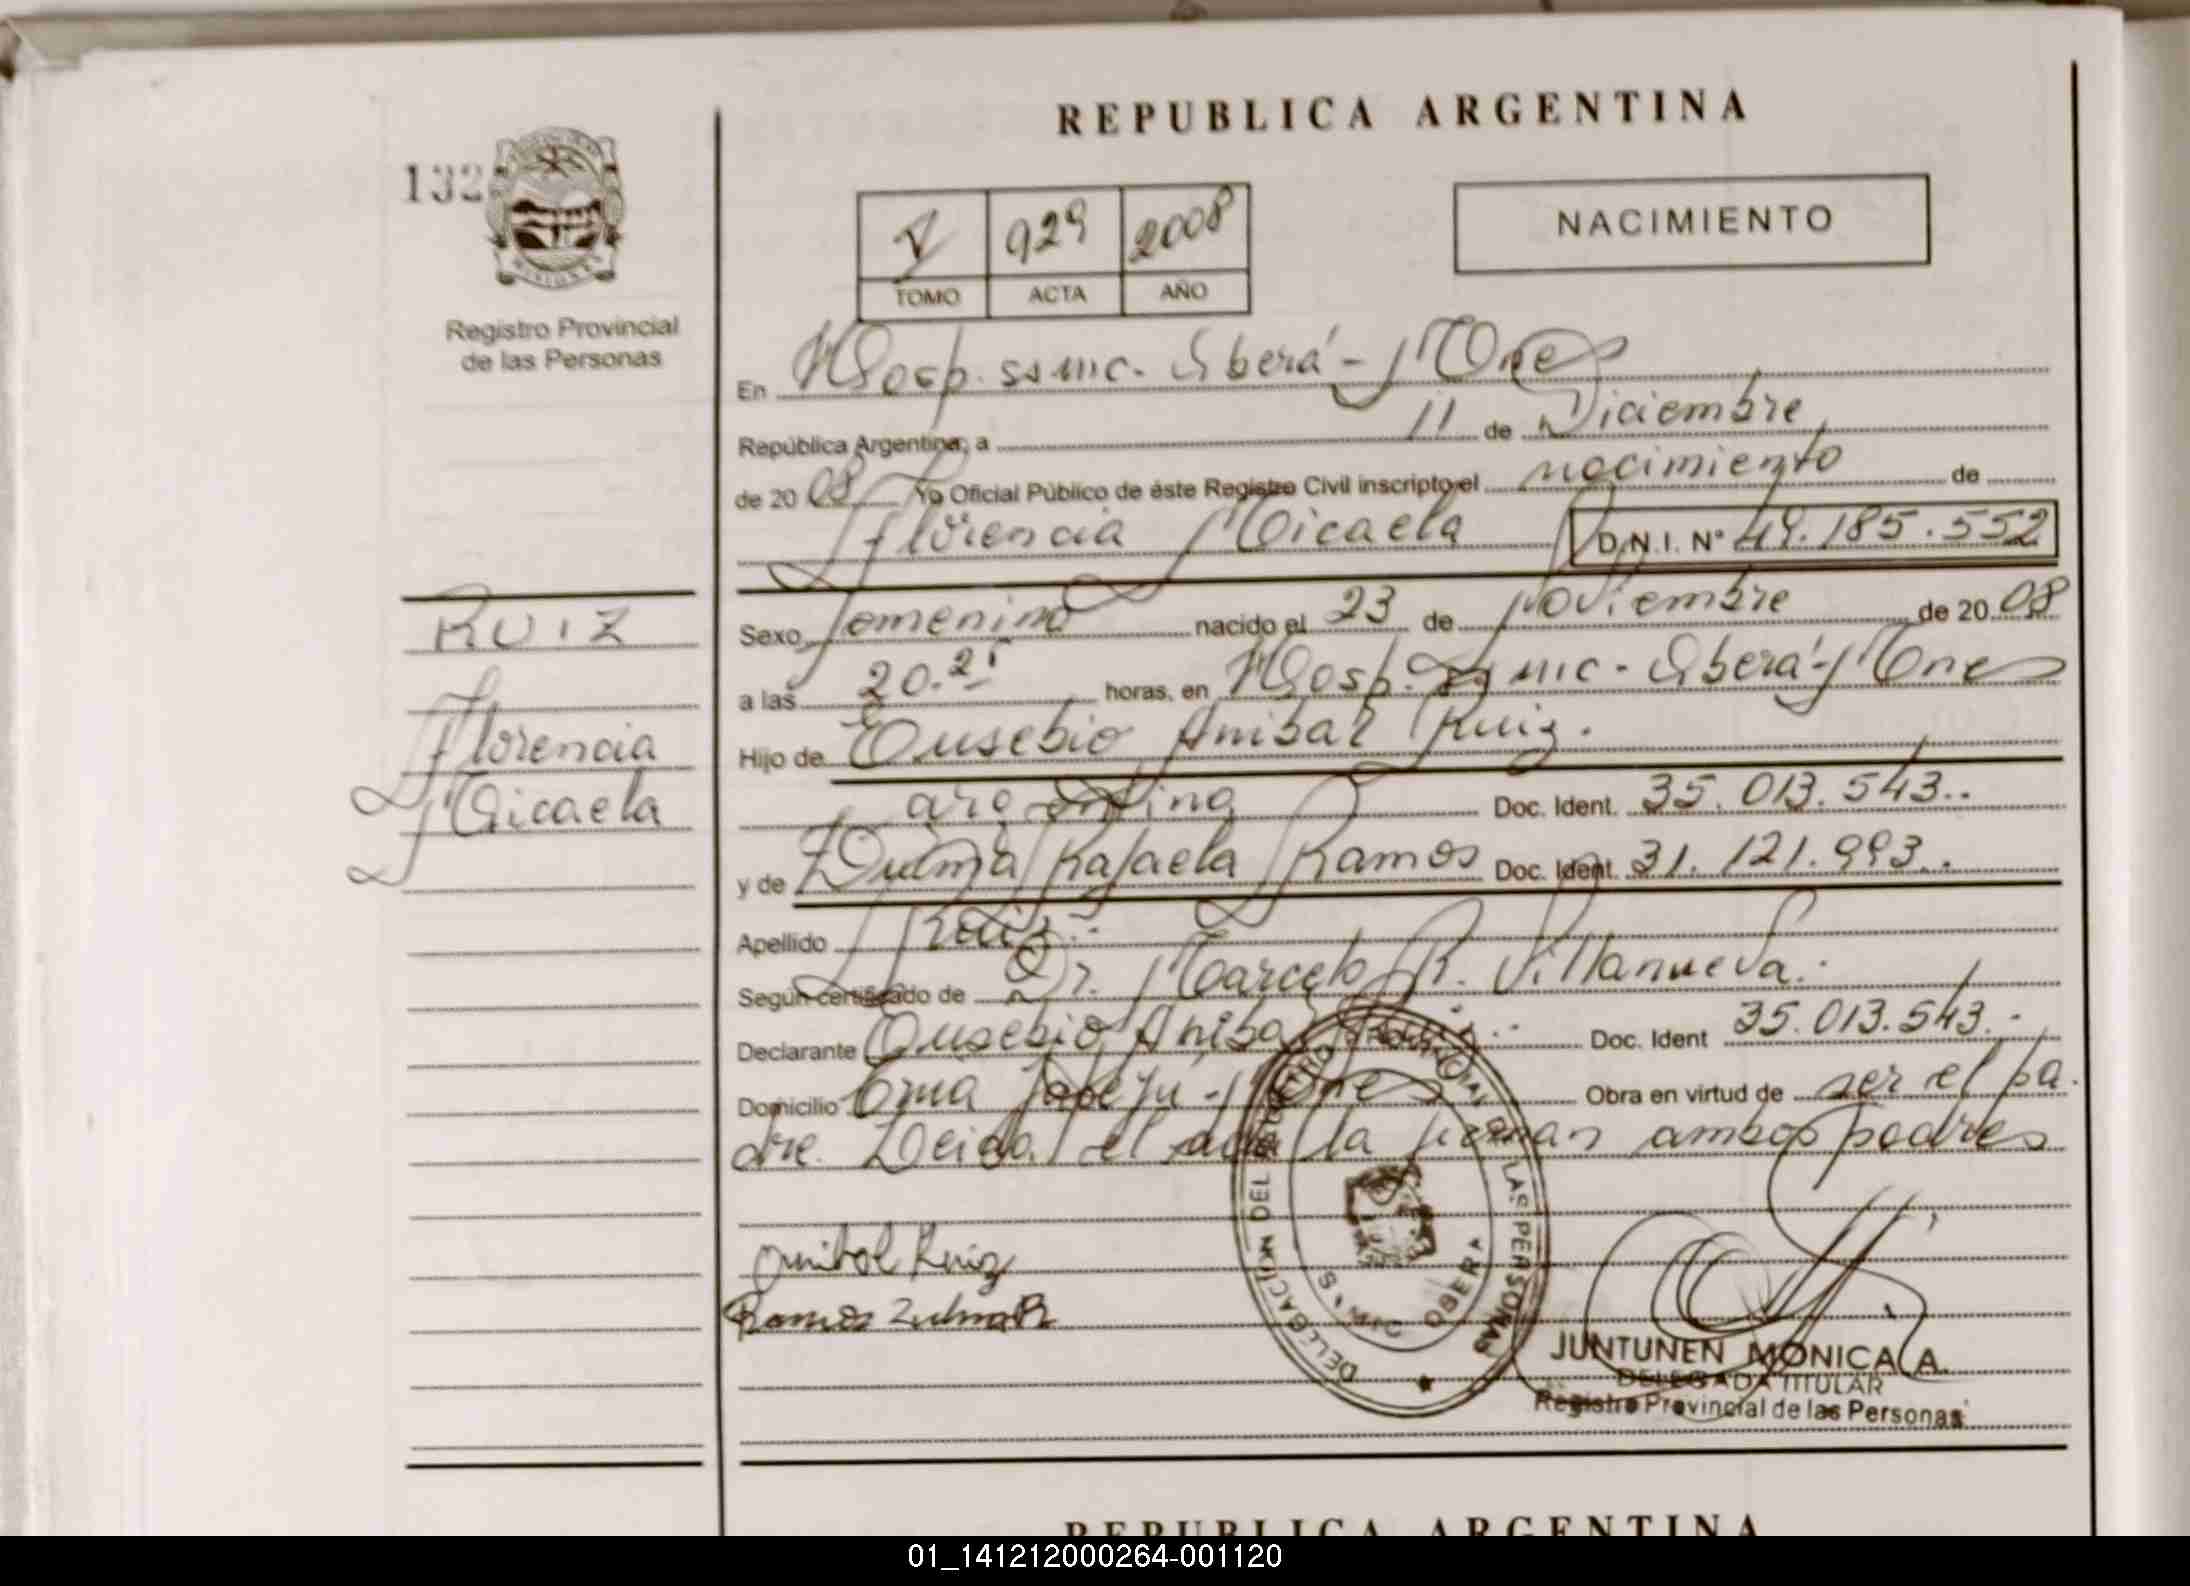 REPUBLICA ARGENTINA
132
NACIMIENTO
929 2008
TOMO ACTA AÑO
Registro Provincial
de las Personas
En Hosp. ssmic. Oberá - Mnes
República Argentina, a 11 de Diciembre
de 20 08 Yo Oficial Público de éste Registro Civil inscripto el nacimiento de
Florencia Micaela D.N.I. N° 49.185.552
RUIZ
Florencia
Micaela
Sexo femenino nacido el 23 de Noviembre de 20 08
a las 20.25 horas, en Hosp. ss mic - Oberá - Mnes
Hijo de Eusebio Anibal Ruiz.
argentina Doc. Ident. 35.013.543..
y de Zulma Rafaela Ramos Doc. Ident. 31.121.993..
Apellido Ruiz.-
Según certificado de Dr. Marcelo R. Villanueva.-
Declarante Eusebio Anibal Ruiz.- Doc. Ident 35.013.543.-
Domicilio Cnia Yapeyú - Mnes Obra en virtud de ser el pa
dre. Leida el acta la firman ambos padres
Anibal Ruiz
Ramos Zulma R
DELEGACION DEL REGISTRO PROVINCIAL DE LAS PERSONAS
OBERA
JUNTUNEN MONICA A.
DELEGADA TITULAR
Registro Provincial de las Personas
REPUBLICA ARGENTINA
01_141212000264-001120